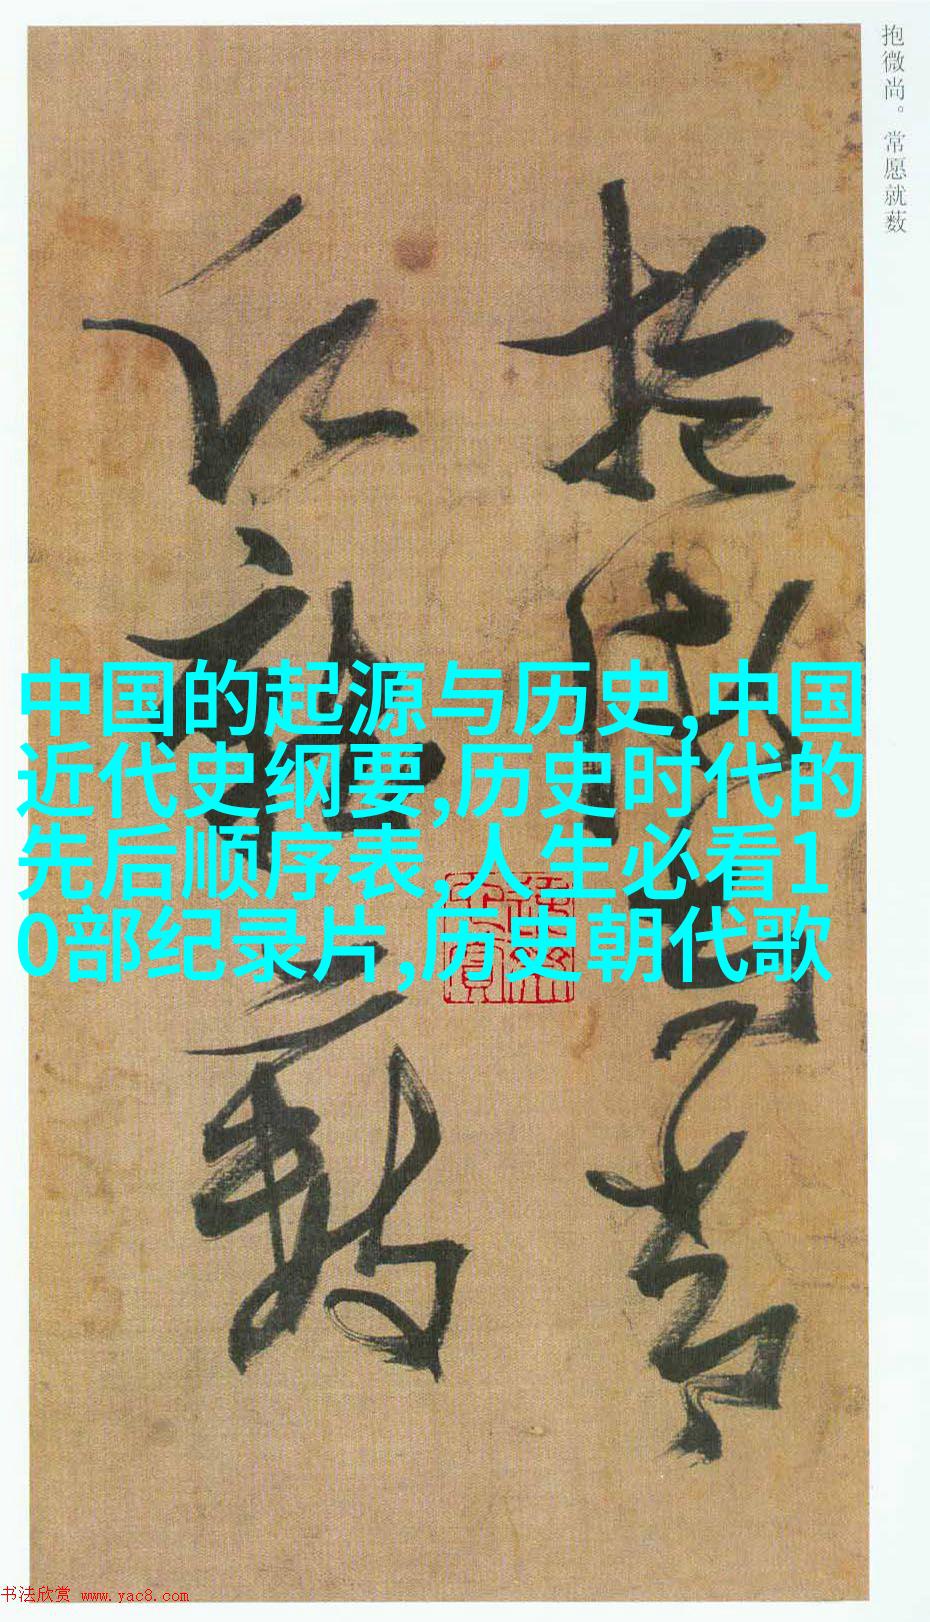 抱微尚。常愿就薮
抱微尚
常愿就薮
中国的起源与历史,中国
近代史纲要,历史时代的
先后顺序表,人生必看1
0部纪录片,历史朝代歌
书法欣赏 www.yac8.com